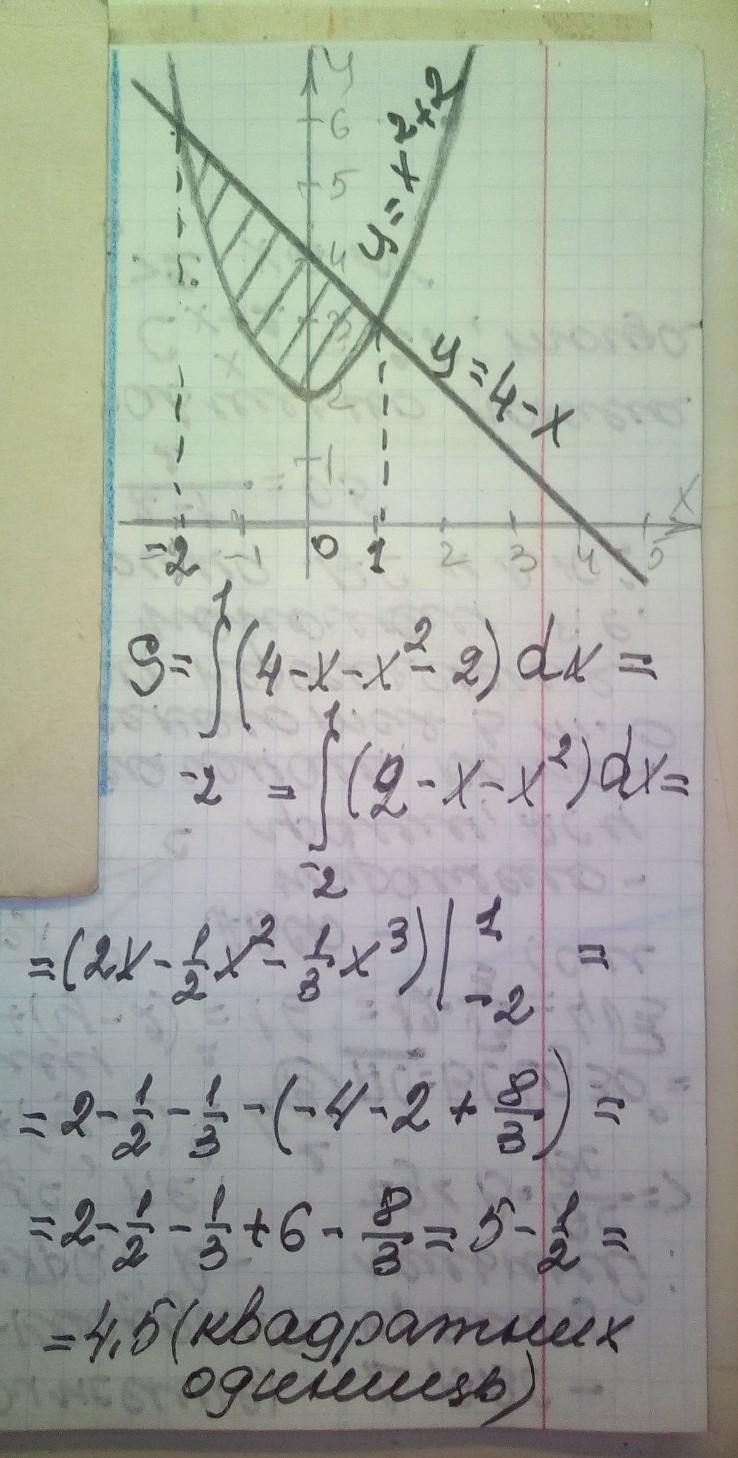 y
6
5
4
3
2
1
y=x²+2
y=4-x
x
-2 -1 0 1 2 3 4 5
S=∫₋₂¹(4-x-x²-2)dx=
=∫₋₂¹(2-x-x²)dx=
=(2x-1/2x²-1/3x³)|₋₂¹=
=2-1/2-1/3-(-4-2+8/3)=
=2-1/2-1/3+6-8/3=5-1/2=
=4,5(квадратних
одиниць)